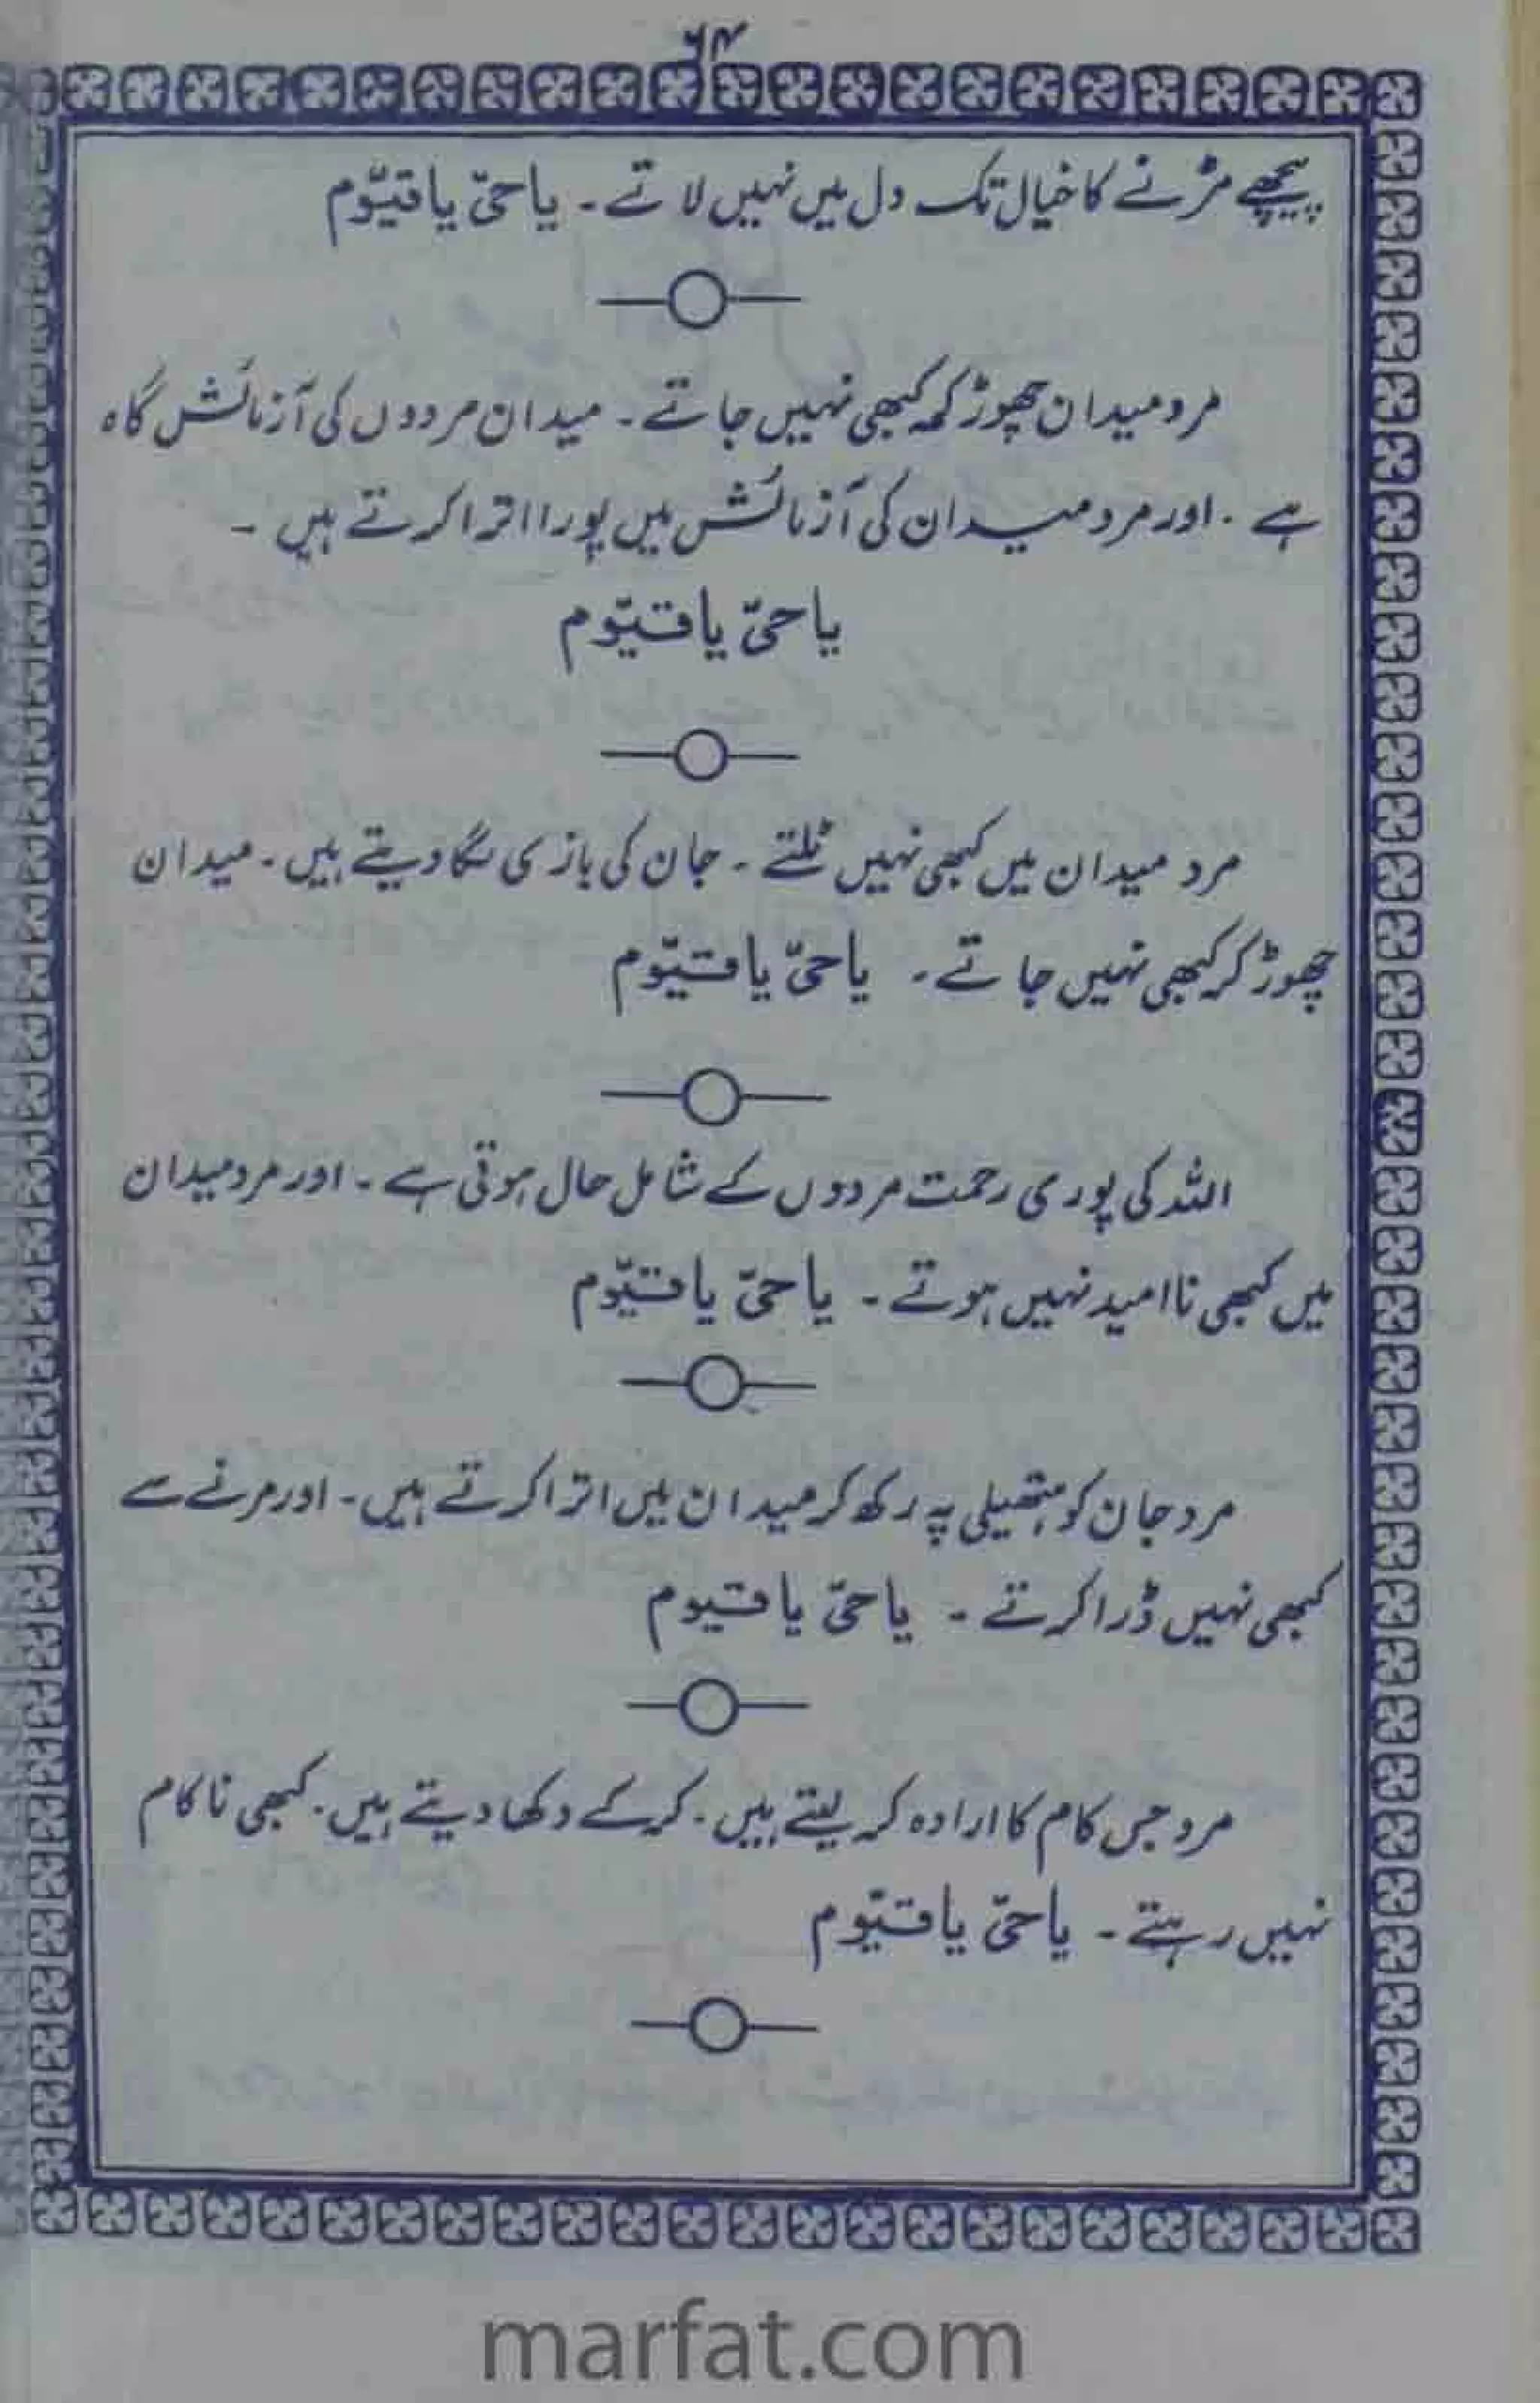 ۶۴
پیچھے مڑنے کا خیال تک دل میں نہیں لاتے۔ یا حیّ یا قیّوم
مرد میدان چھوڑ کر کبھی نہیں جاتے۔ میدان مردوں کی آزمائش گاہ
ہے۔ اور مرد میدان کی آزمائش میں پورا اترا کرتے ہیں۔
یا حیّ یا قیّوم
مرد میدان میں کبھی نہیں ٹلتے۔ جان کی بازی لگا دیتے ہیں۔ میدان
چھوڑ کر کبھی نہیں جاتے۔ یا حیّ یا قیّوم
اللہ کی پوری رحمت مردوں کے شامل حال ہوتی ہے۔ اور مرد میدان
میں کبھی نا امید نہیں ہوتے۔ یا حیّ یا قیّوم
مرد جان کو ہتھیلی پہ رکھ کر میدان میں اترا کرتے ہیں۔ اور مرنے سے
کبھی نہیں ڈرا کرتے۔ یا حیّ یا قیوم
مرد جس کام کا ارادہ کر لیتے ہیں۔ کر کے دکھا دیتے ہیں۔ کبھی ناکام
نہیں رہتے۔ یا حیّ یا قیّوم
marfat.com